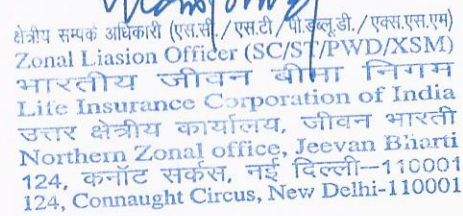 क्षेत्रीय सम्पर्क अधिकारी (एस.सी./एस.टी/पी.डब्लू.डी./एक्स.एस.एम)
Zonal Liasion Officer (SC/ST/PWD/XSM)
भारतीय जीवन बीमा निगम
Life Insurance Corporation of India
उत्तर क्षेत्रीय कार्यालय, जीवन भारती
Northern Zonal office, Jeevan Bharti
124, कनॉट सर्कस, नई दिल्ली–110001
124, Connaught Circus, New Delhi-110001